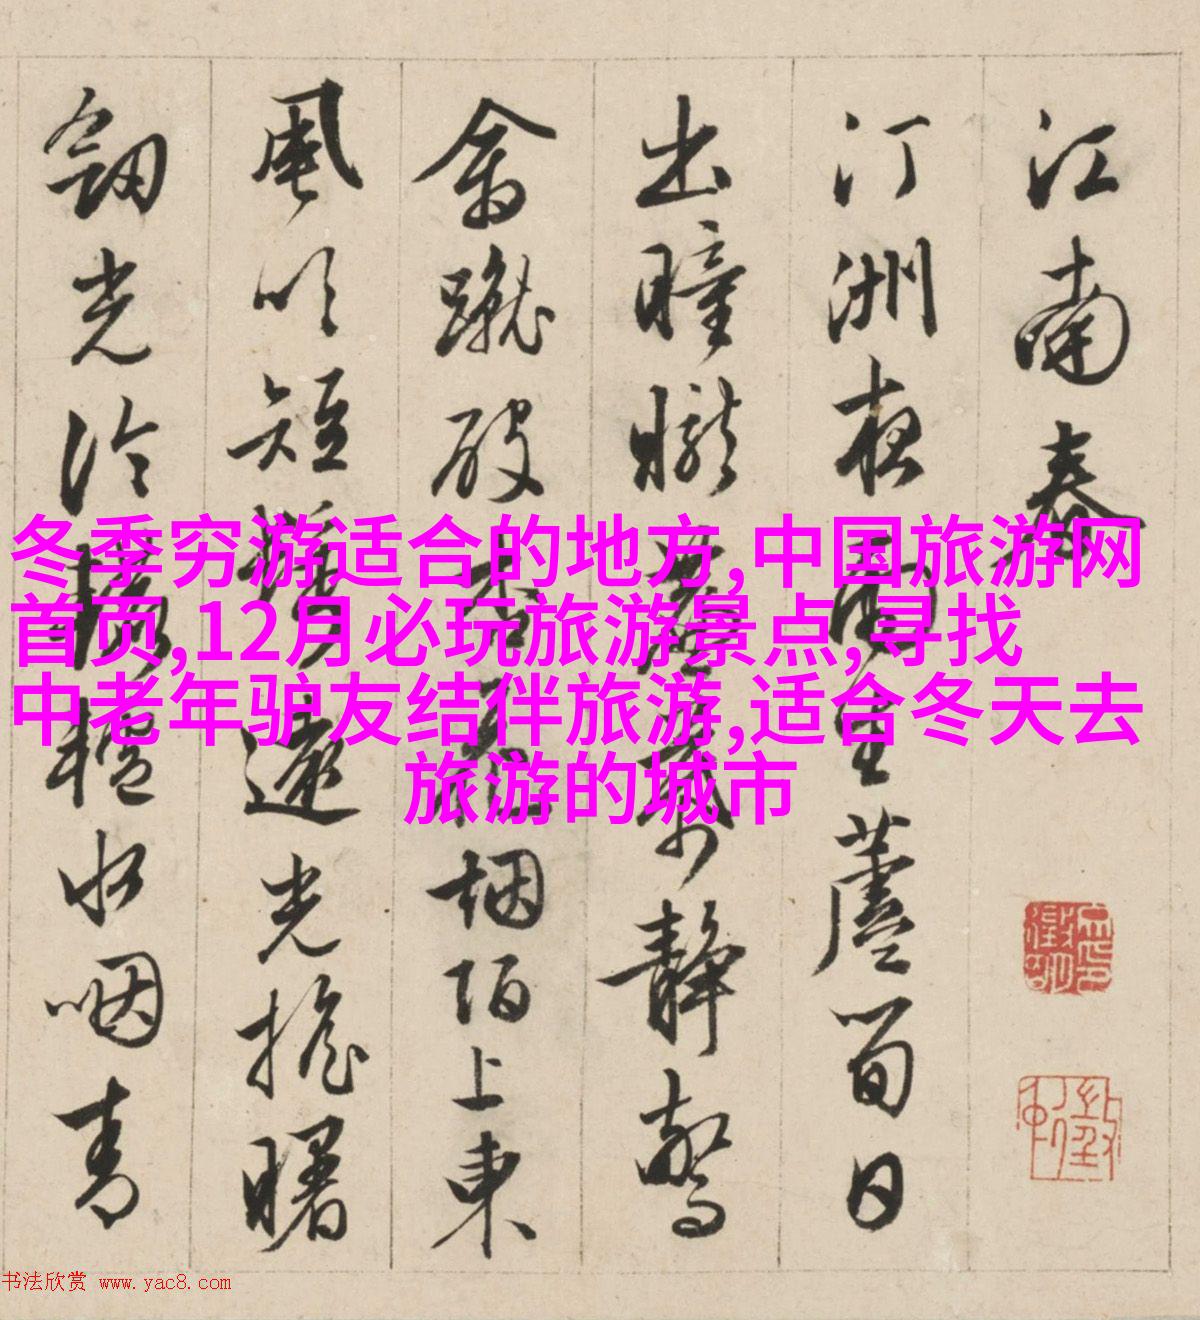 冬季穷游适合的地方,中国旅游网
首页,12月必玩旅游景点,寻找
中老年驴友结伴旅游,适合冬天去
旅游的城市
江南春
汀洲夜雨生蘆筍日
出曈曨簾幕靜驚
禽蹴破杏花烟陌上東
風吹短鬢遠光搖曙
劒光冷轆轤水咽青
书法欣赏 www.yac8.com